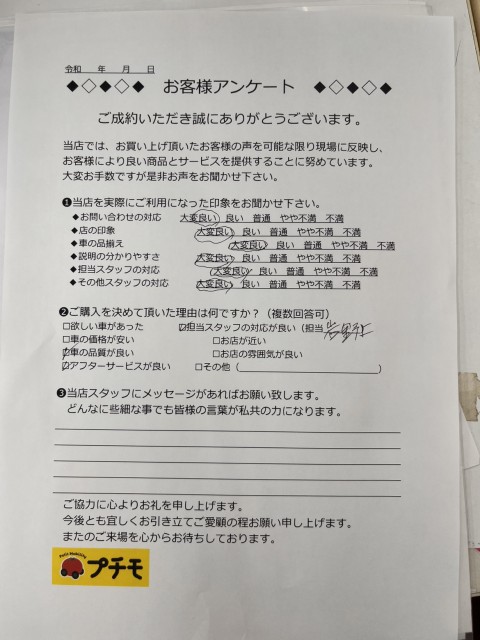 令和　　年　　月　　日
◆◇◆◇◆　お客様アンケート　◆◇◆◇◆
ご成約いただき誠にありがとうございます。
当店では、お買い上げ頂いたお客様の声を可能な限り現場に反映し、
お客様により良い商品とサービスを提供することに努めています。
大変お手数ですが是非お声をお聞かせ下さい。
❶当店を実際にご利用になった印象をお聞かせ下さい。
◆お問い合わせの対応　大変良い　良い　普通　やや不満　不満
◆店の印象　大変良い　良い　普通　やや不満　不満
◆車の品揃え　大変良い　良い　普通　やや不満　不満
◆説明の分かりやすさ　大変良い　良い　普通　やや不満　不満
◆担当スタッフの対応　大変良い　良い　普通　やや不満　不満
◆その他スタッフの対応　大変良い　良い　普通　やや不満　不満
❷ご購入を決めて頂いた理由は何ですか？（複数回答可）
□欲しい車があった　☑担当スタッフの対応が良い（担当
□車の価格が安い　□お店が近い
☑車の品質が良い　□お店の雰囲気が良い
☑アフターサービスが良い　□その他（　　　　）
❸当店スタッフにメッセージがあればお願い致します。
どんなに些細な事でも皆様の言葉が私共の力になります。
ご協力に心よりお礼を申し上げます。
今後とも宜しくお引き立てご愛顧の程お願い申し上げます。
またのご来場を心からお待ちしております。
Petit Mobility
プチモ